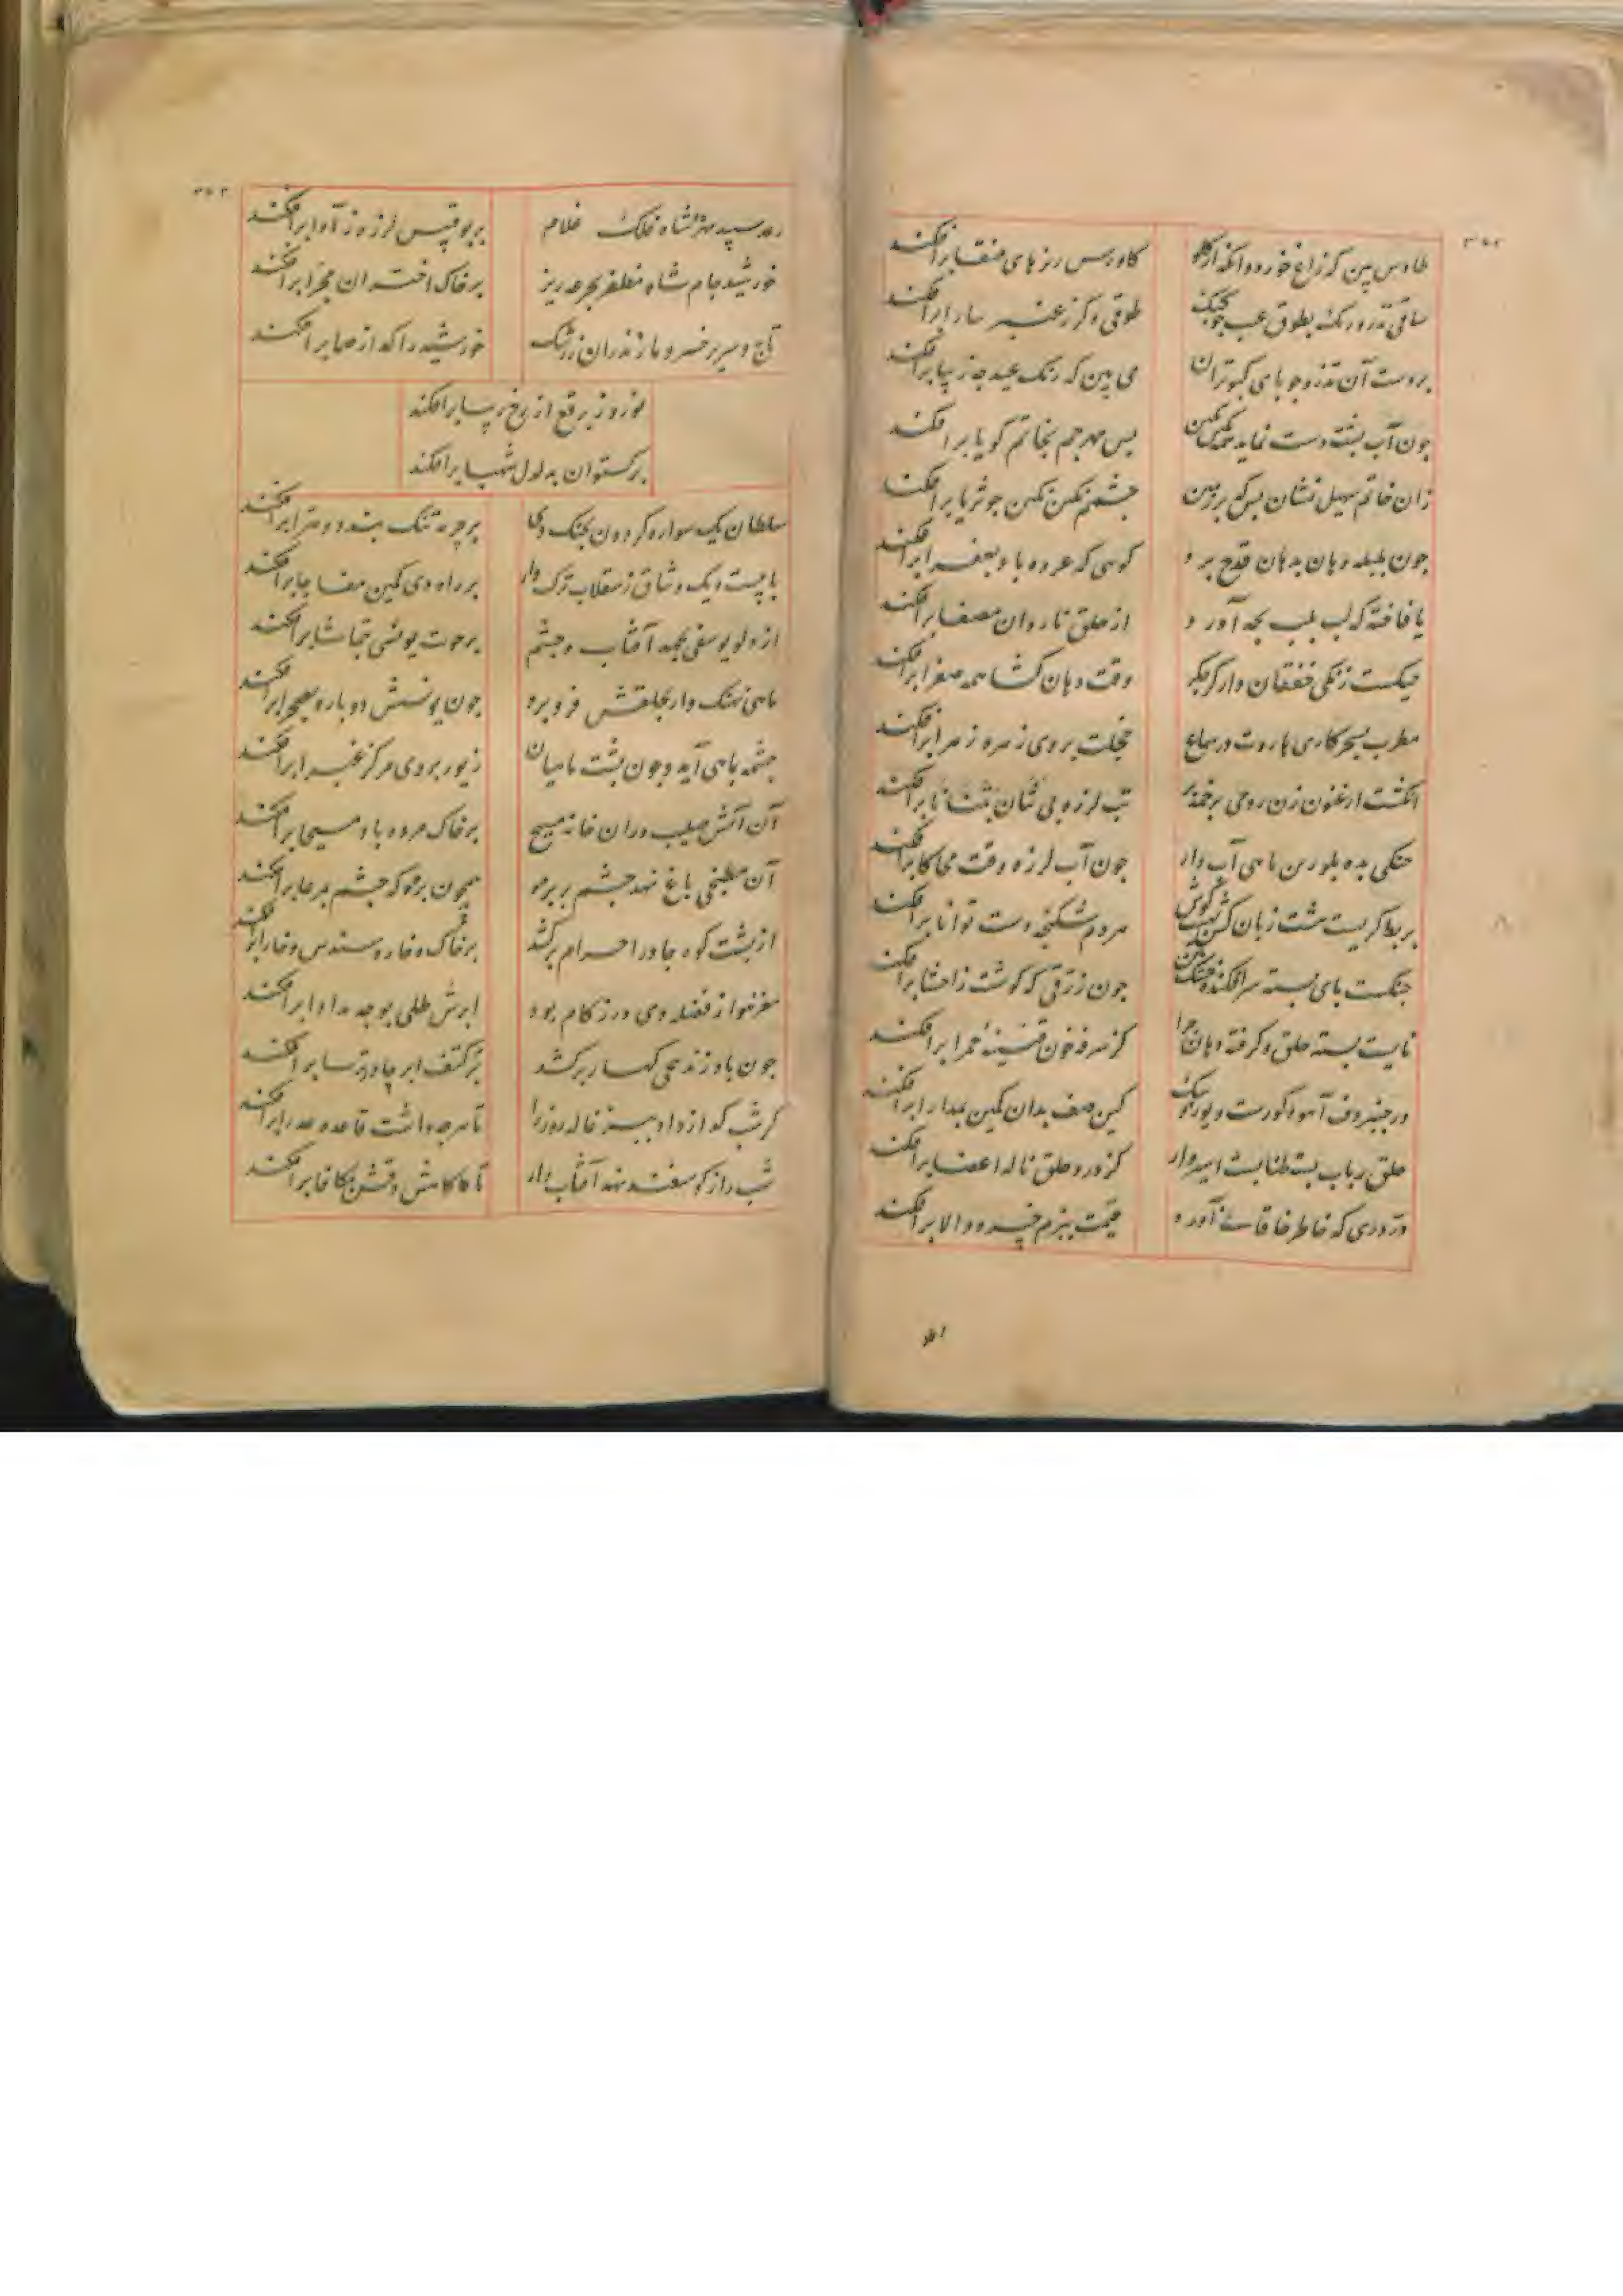 ۳۵۲
طاوس بین که زاغ خورد وانکه از گلو
کاورس ریزهای منقا برافکند
ساقی تذرو رنک بطوق غبب چو کبک
طوقی دکر ز عنبر سارا برافکند
بر دست آن تذرو چو پای کبوتران
می بین که رنک عید چه زیبا برافکند
چون آب پشت دست نماید نکین نکین
پس مهر جم بخاتم کویا برافکند
زان خاتم سهیل نشان بین که بر زمین
چشمم نکین نکین چو ثریا برافکند
چون بلبله دهان بدهان قدح برد
کوئی که عروه باد بعفرا برافکند
یا فاخته که لب بلب بچه آورد
از حلق ناردان مصفا برافکند
خیکست زنکی خفقان دار کز جکر
وقت دهان کشا همه صفرا برافکند
مطرب بسحر کاری هاروت در سماع
خجلت بروی زهره زهرا برافکند
انکشت ارغنون زن رومی بزخمه بر
تب لرزه تنا تننانا برافکند
چنکی بده بلورین ماهی آب دار
چون آب لرزه وقت محاکا برافکند
بربط کریست هشت زبان کش بهشت کوش
هر دم شکنجه دست توانا برافکند
چنکست پای بسته سر افکنده خشک تن
چون زرقی که کوشت ز احشا برافکند
نایست بسته حلق و کرفته دهان چرا
کز سرفه خون قنینه حمرا برافکند
در چنبر دف آهو و کورست و یوز و سک
کین صف بدان کمین بمدارا برافکند
حلق رباب بسته طنابست اسیروار
کز درد حلق ناله اعضا برافکند
در دری که خاطر خاقانی آورد
قیمت ببزم خسرو والا برافکند
۳۵۳
رعد سپید مهره شاه فلک غلام
بر بوقبیس لرزه ز آوا برافکند
خورشید جام شاه مظفر بجرعه ریز
بر خاک اختران مجزا برافکند
تاج و سریر خسرو مازندران ز رشک
خورشید را کداز همابرافکند
نوروز برقع از رخ زیبا برافکند
برکستوان بدلدل شهبا برافکند
سلطان یک سواره کردون بجنک دی
بر چرمه تنک بندد و هرا برافکند
با بیست و یک وشاق ز سقلاب ترک وار
بر راه دی کمین مفاجا برافکند
از دلو یوسفی بجهد آفتاب و چشم
بر حوت یونسی بتماشا برافکند
ماهی نهنک وار بحلقش فرو برد
چون یونسش دوباره بصحرا برافکند
چشمه بماهی آید و چون پشت ماهیان
زیور بروی مرکز غبرا برافکند
آن آتشین صلیب در آن خانه مسیح
بر خاک مرده باد مسیحا برافکند
آن مطبخی باغ نهد چشم بر بره
همچون بره که چشم بمرعا برافکند
از پشت کوه چادر احرام برکشد
بر خاک و خاره سندس و خارا برافکند
مغز هوا ز فضله دی در زکام بود
ابرش طلی بوجه مداوا برافکند
چون باد زند نیجی کهسار برکشد
بر کتف ابر چادر ترسا برافکند
کر شب کدازد او ببزغاله روز را
تا هر چه داشت قاعده عدرا برافکند
شب را ز کوسفند نهد آفتاب زار
تا کاهش دقش بمکافا برافکند